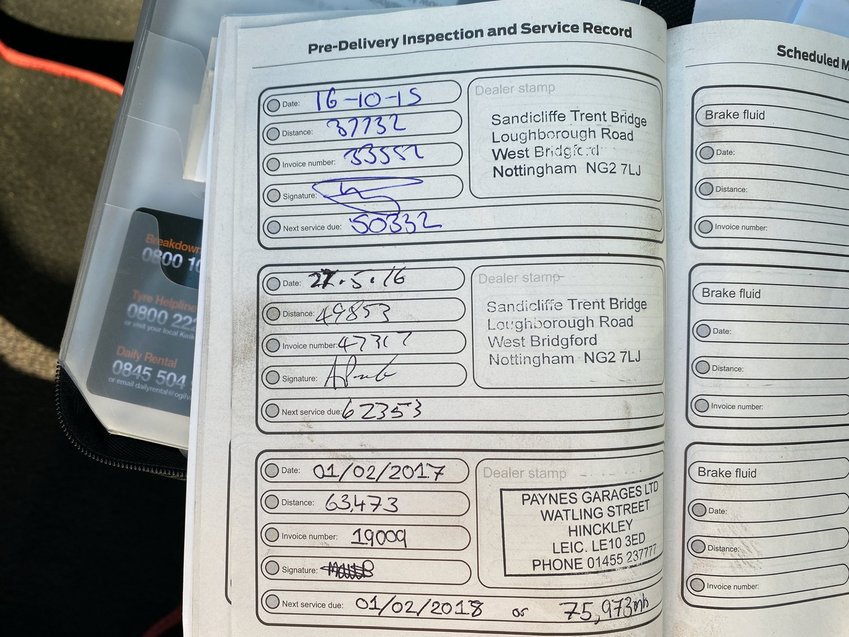 Pre-Delivery Inspection and Service Record
Date: 16-10-15
Distance: 37732
Invoice number: 33552
Signature:
Next service due: 50332
Dealer stamp
Sandicliffe Trent Bridge
Loughborough Road
West Bridgford
Nottingham NG2 7LJ
Date: 27.5.16
Distance: 49853
Invoice number: 47317
Signature:
Next service due: 62353
Dealer stamp
Sandicliffe Trent Bridge
Loughborough Road
West Bridgford
Nottingham NG2 7LJ
Date: 01/02/2017
Distance: 63,473
Invoice number: 19009
Signature:
Next service due: 01/02/2018 or 75,973mls
Dealer stamp
PAYNES GARAGES LTD
WATLING STREET
HINCKLEY
LEIC. LE10 3ED
PHONE 01455 237777
Scheduled
Brake fluid
Date:
Distance:
Invoice number:
Brake fluid
Date:
Distance:
Invoice number:
Brake fluid
Date:
Distance:
Invoice number:
Breakdown
0800
Tyre Helpline
0800
or visit your local
Daily Rental
0845 504
or email